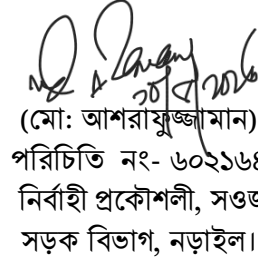 (মো: আশরাফুজ্জামান)
পরিচিতি নং- ৬০২১৬৪
নির্বাহী প্রকৌশলী, সওজ
সড়ক বিভাগ, নড়াইল।